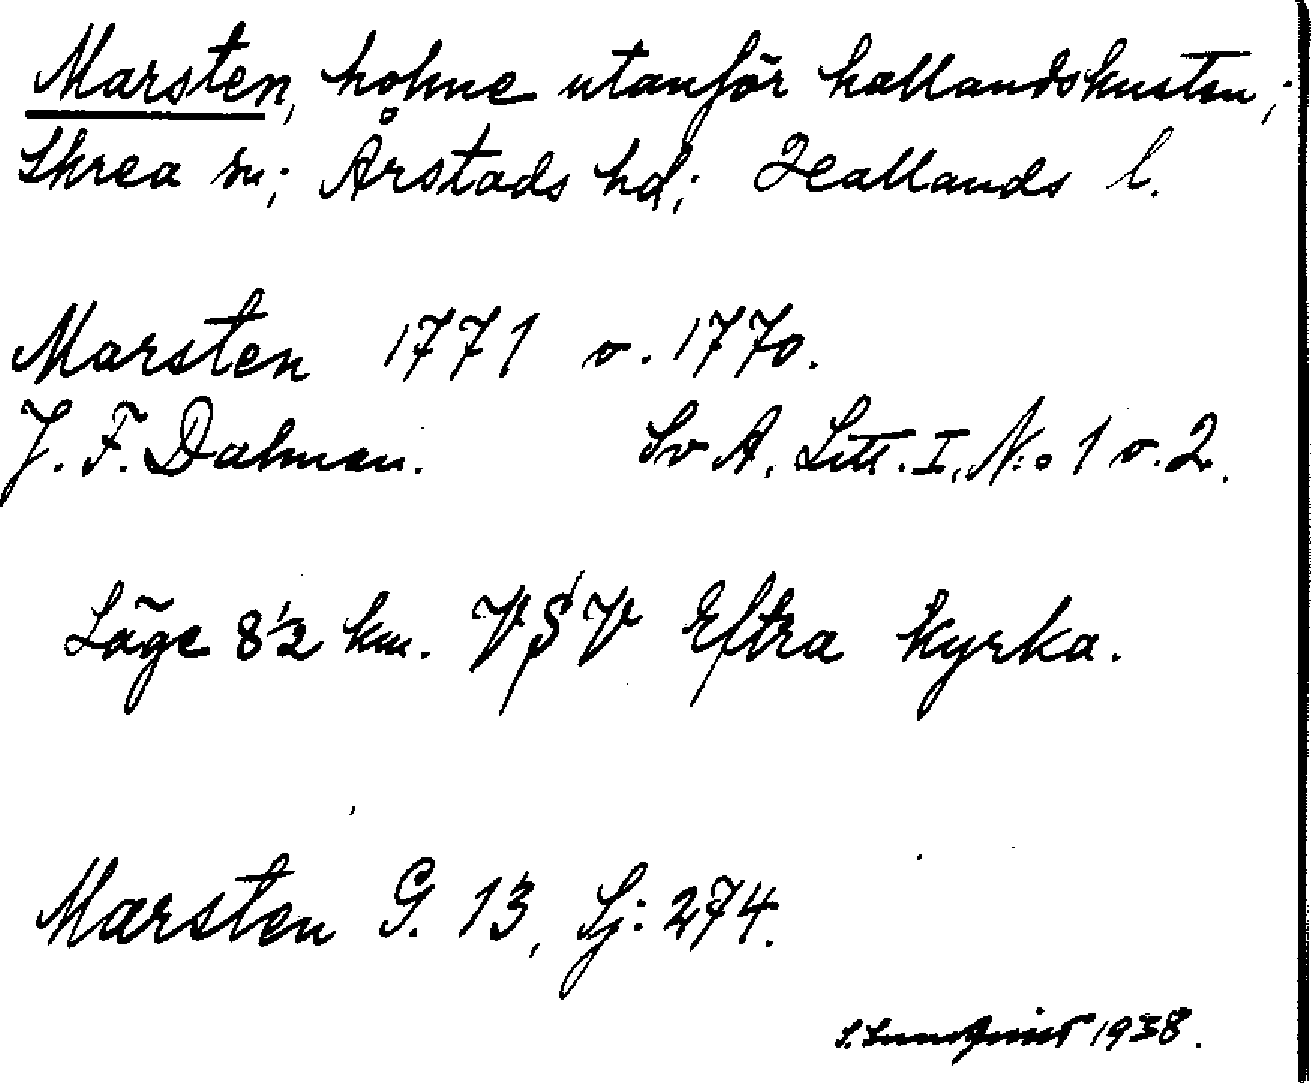 Marsten, holme utanför hallandskusten;
Skrea sn; Årstads hd; Hallands l.
Marsten 1771 o. 1770.
J. F. Dalman. Sv A, Litt. I, N:o 1 o. 2.
Läge 8½ km. VSV Eftra kyrka.
Marsten G. 13, Sj: 274.
S. Lundquist 1938.